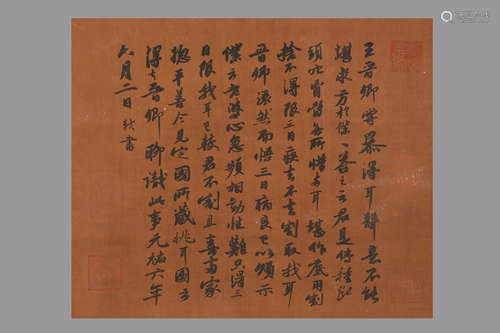 王晉卿嘗暴得耳聾意不能
堪求方於僕〻答之云君是將種斷
頭穴胸當無所惜兩耳堪作底用割
捨不得限三日疾去不去割取我耳
晉卿灑然而悟三日病良已以頌示
僕云老婆心急頻相勸性難只得三
日限我耳已效君不割且喜兩家
總平善今見定國所藏挑耳圖云
得之晉卿聊識此事元祐六年
六月二日軾書